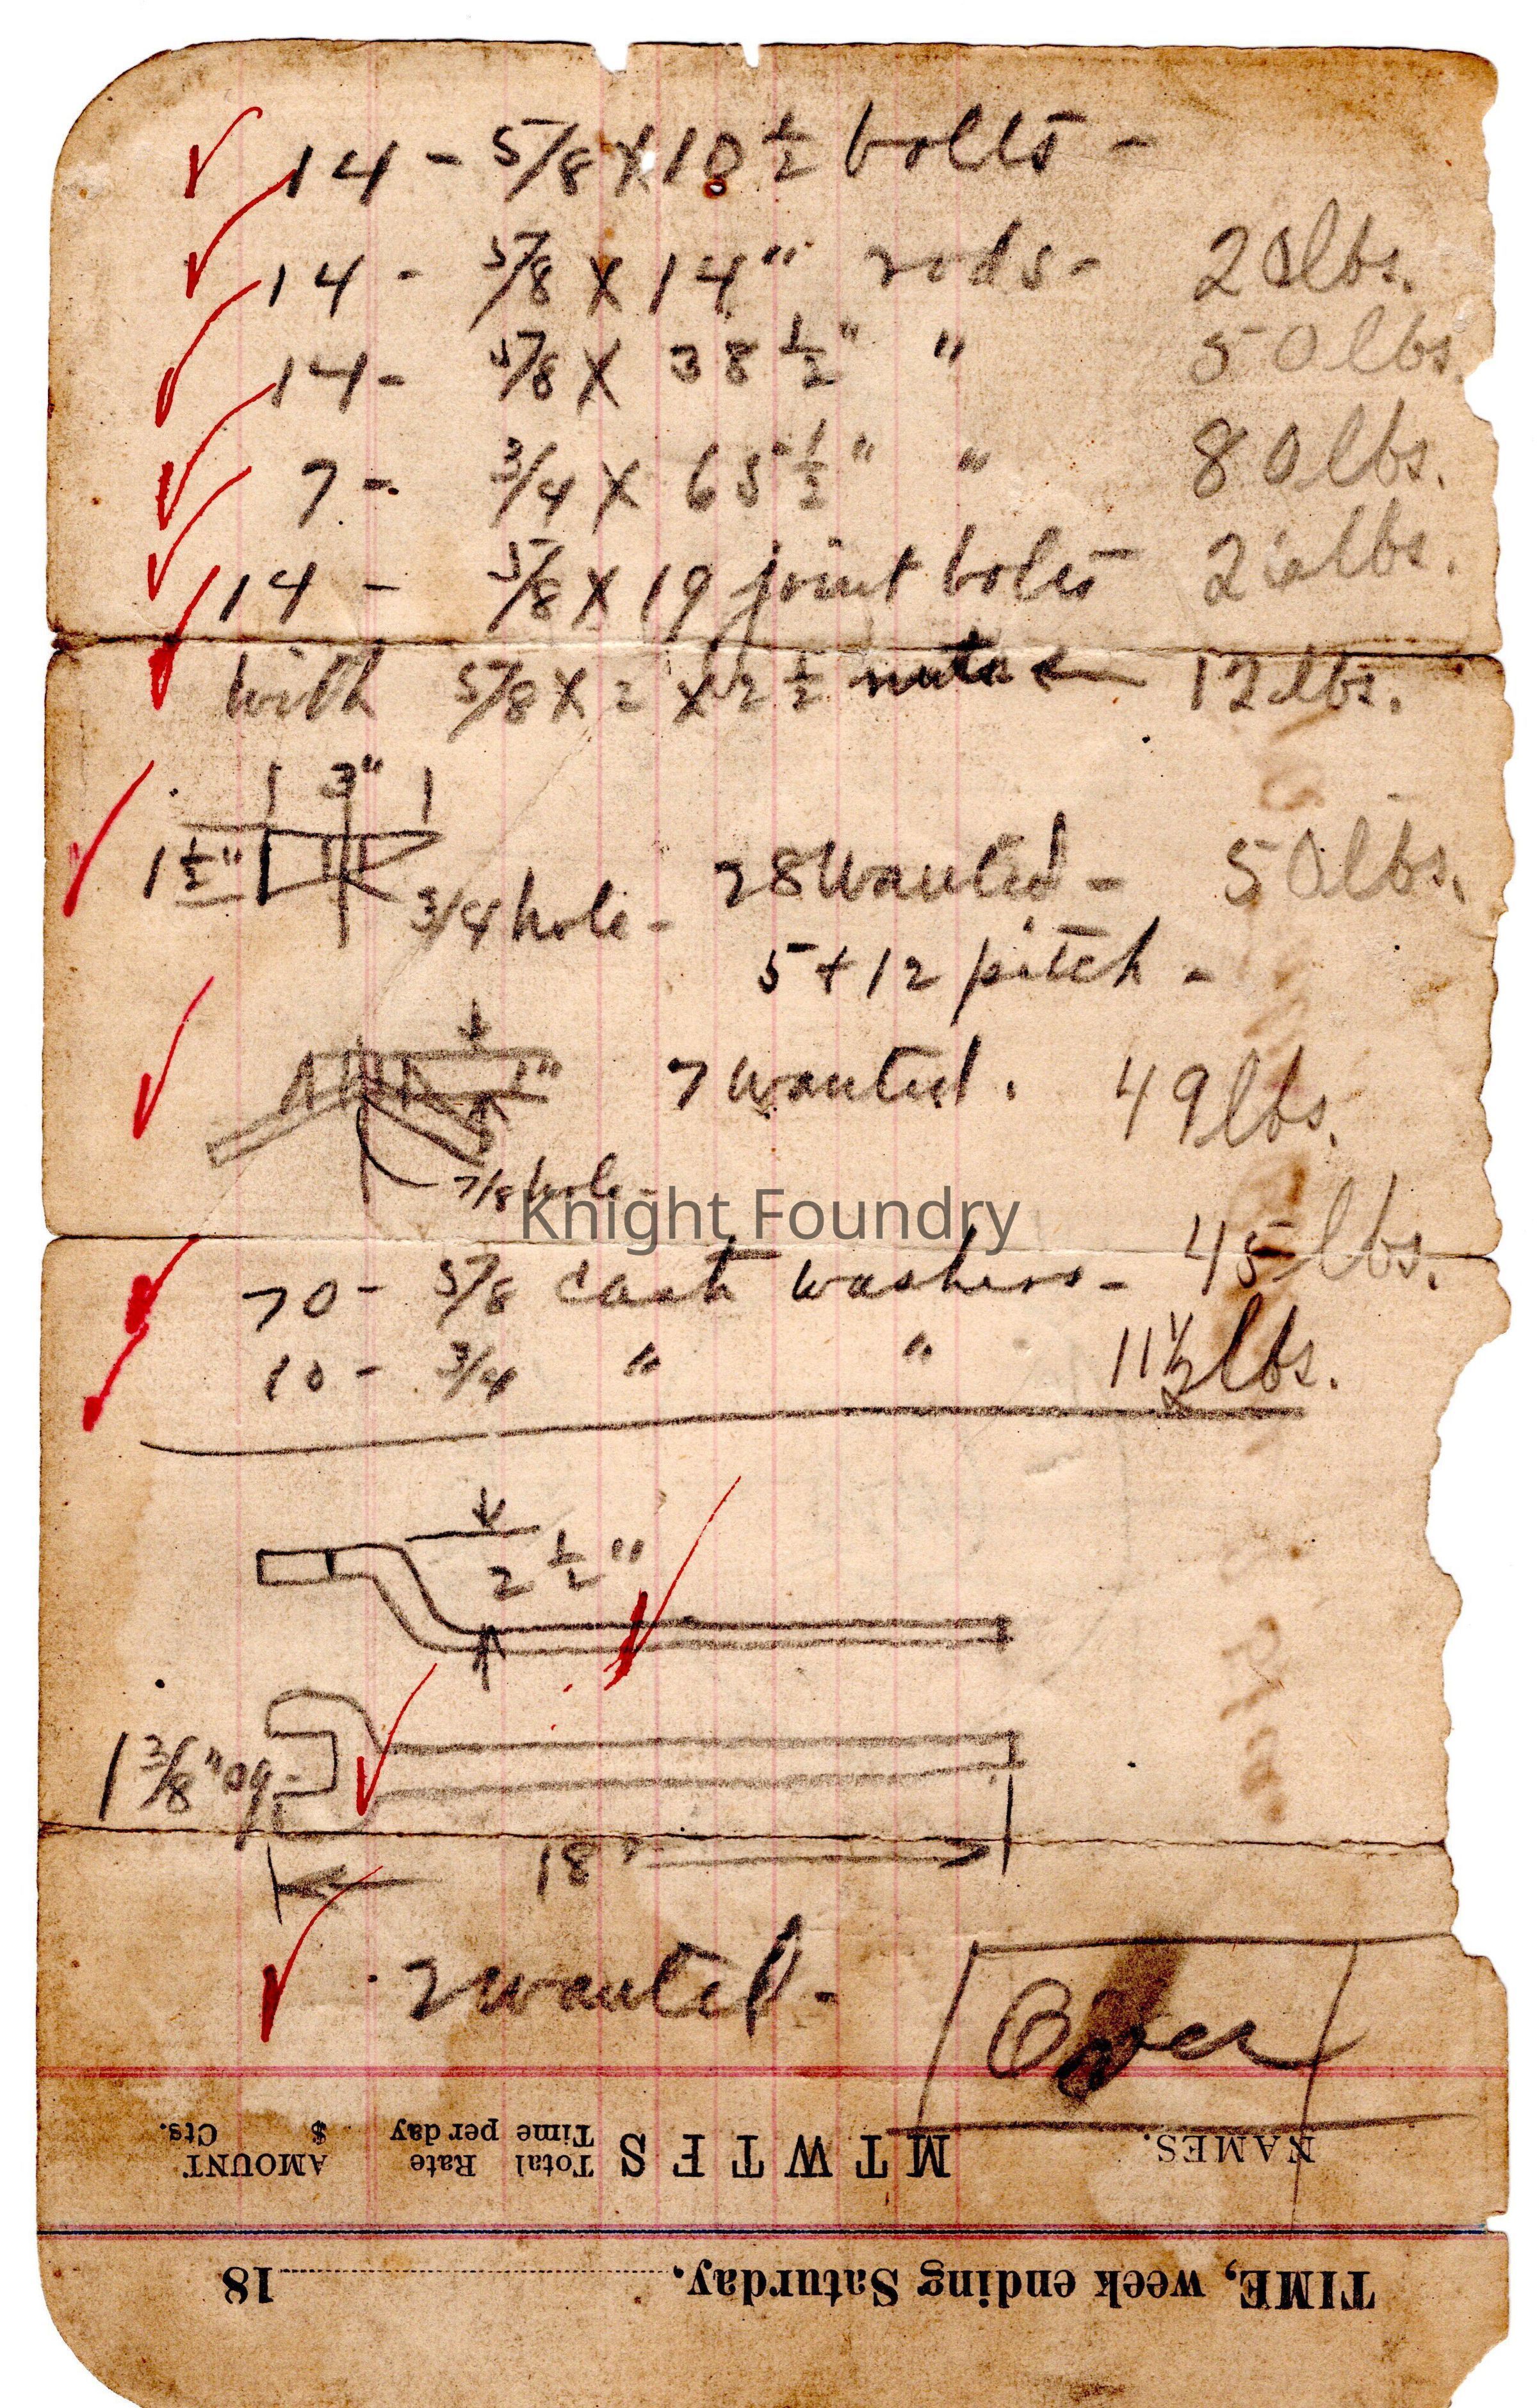 14 - 5/8 X 10 1/2 bolts -
14 - 5/8 X 14" rods - 20 lbs.
14 - 5/8 X 38 1/2" " 50 lbs
7 - 3/4 X 65 1/2" " 80 lbs.
14 - 5/8 X 19 joint bolts lbs.
with 5/8 X 2 X 2 1/2 nuts 12 lbs.
3"
1 1/2"
28 Wanted - 50 lbs.
3/4 hole -
5 + 12 pitch -
1" 7 Wanted. 49 lbs.
7/8 hole -
Knight Foundry
70 - 5/8 cast washers - 45 lbs.
10 - 3/4 " " 11 1/2 lbs.
2 1/2"
1 3/8"
18"
2 wanted -
Over
TIME, week ending Saturday, 18
NAMES. M T W T F S Total Time Rate per day AMOUNT $ Cts.